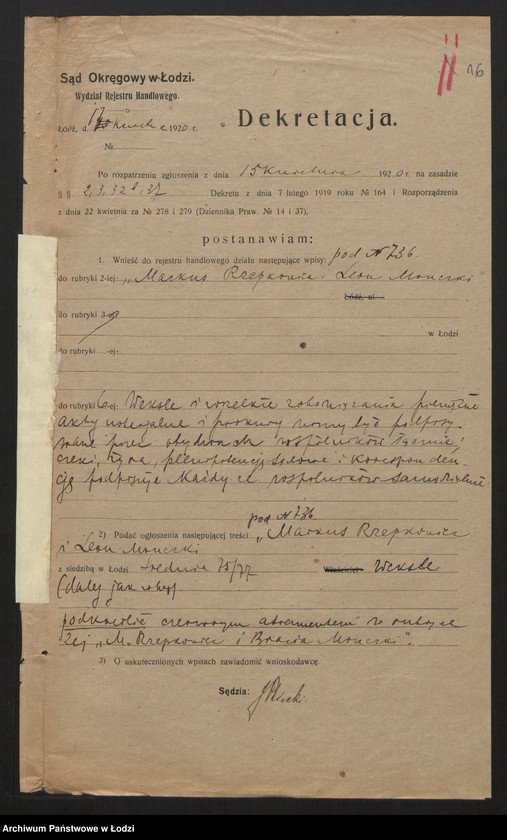 16
Sąd Okręgowy w Łodzi.
Wydział Rejestru Handlowego.
Łódź, d. 17 1920 r.
№
Dekretacja.
Po rozpatrzeniu zgłoszenia z dnia 15 Kwietnia 1920 r. na zasadzie
§ § 2, 3, 32 i 37 Dekretu z dnia 7 lutego 1919 roku № 164 i Rozporządzenia
z dnia 22 kwietnia za № 278 i 279 (Dziennika Praw. № 14 i 37),
postanawiam:
1. Wnieść do rejestru handlowego działu następujące wpisy: pod № 736.
do rubryki 2-iej: „Markus Rzepkowicz i Leon Monczki"
Łódź, ul
do rubryki 3-ej
w Łodzi
do rubryki ej:
do rubryki 6-ej: Weksle i wszelkie zobowiązania pieniężne
akty notarjalne i prokury winny być podpisy-
wane przez obydwóch wspólników łącznie;
czeki, żyra, plenipotencje sądowe i koresponden-
cję podpisuje każdy ze wspólników samodzielnie
pod № 736
2) Podać ogłoszenia następującej treści „Markus Rzepkowicz
i Leon Monczki
z siedzibą w Łodzi Średnia 75/77 Właściciel Weksle
(dalej jak wyżej).
podkreślić czerwonym atramentem w rubryce
2ej „M. Rzepkowicz i Bracia Monczki".
3) O uskutecznionych wpisach zawiadomić wnioskodawcę.
Sędzia:
Archiwum Państwowe w Łodzi